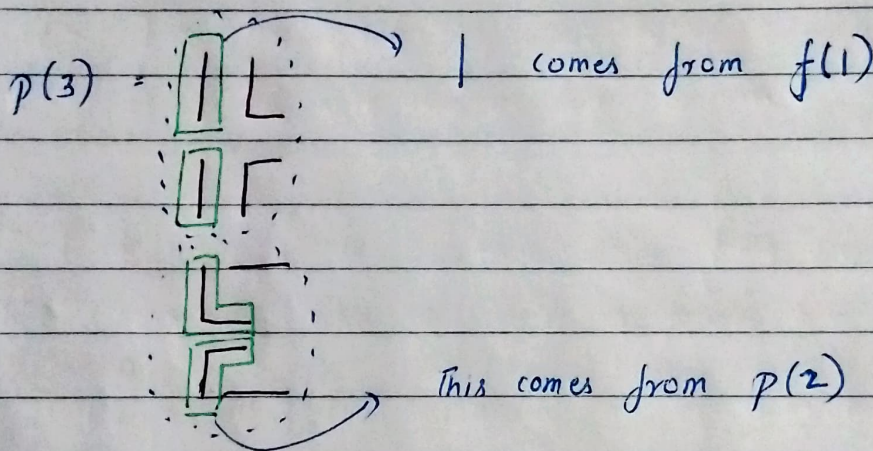 p(3) =
| comes from f(1)
This comes from p(2)